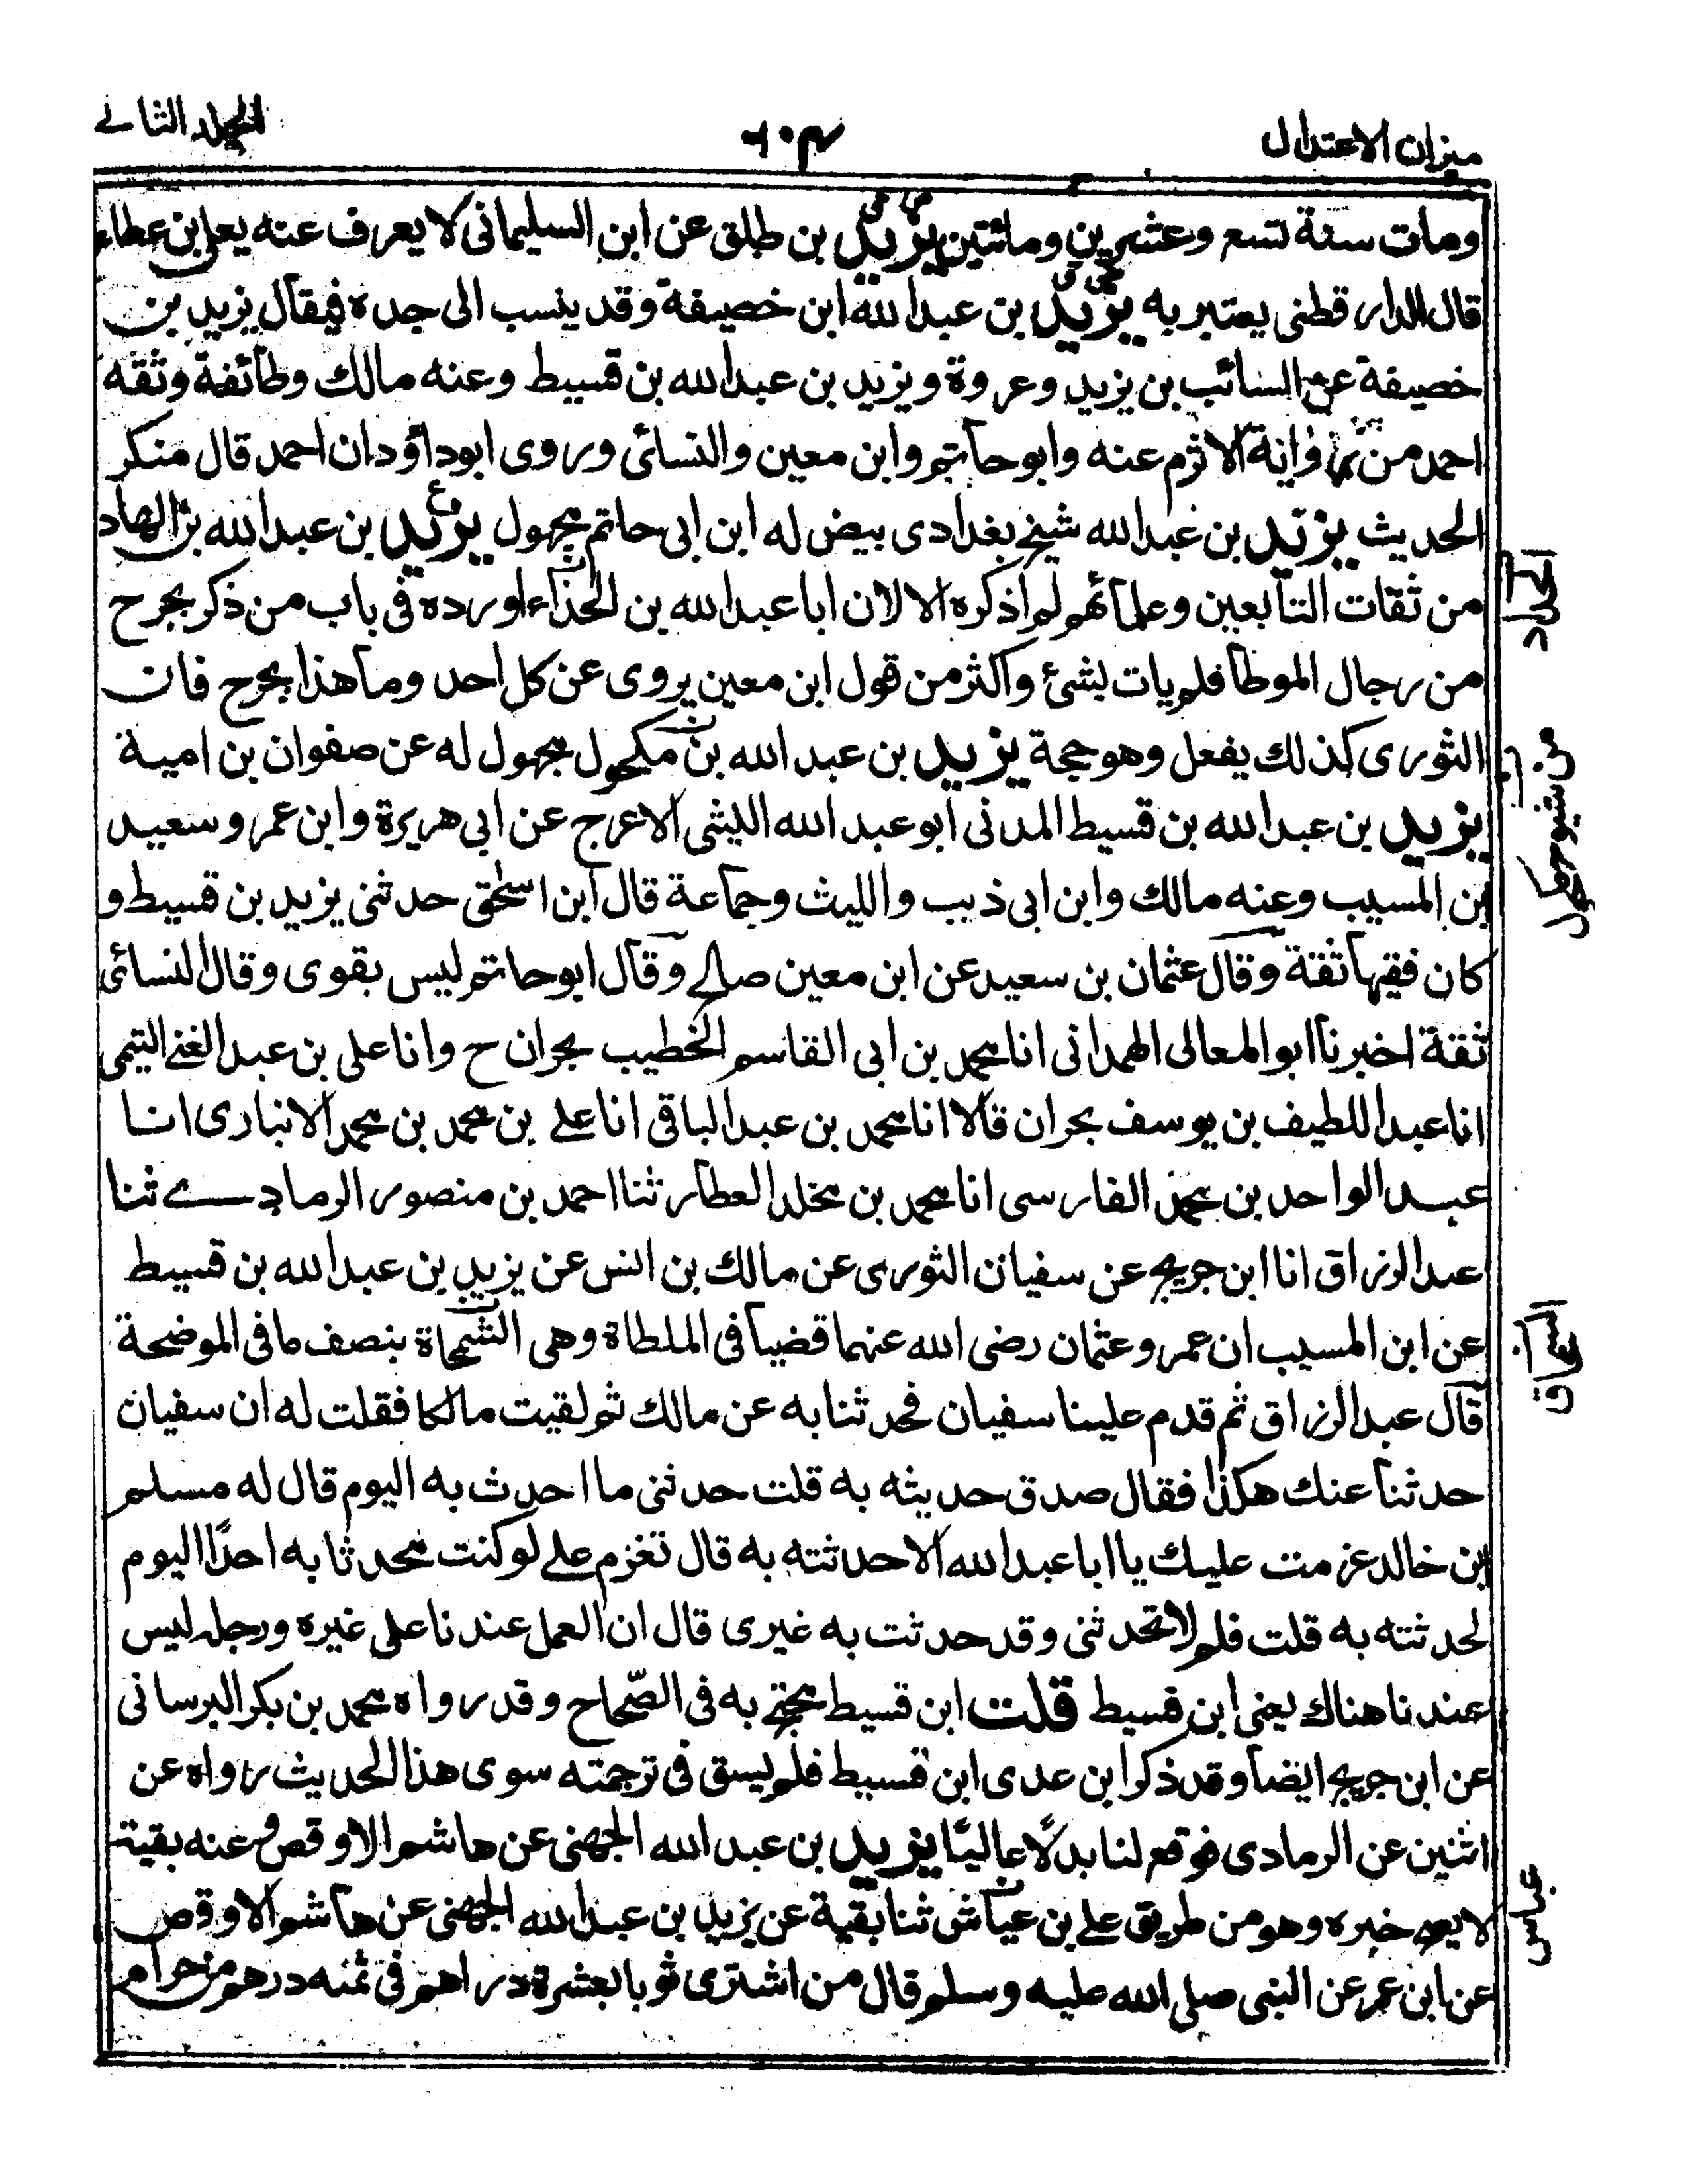 ميزان الاعتدال
المجلد الثانى
ومات سنة تسع وعشرين ومائتين يزيد بن طلق عن ابن السليمانى لا يعرف عنه يعلى بن عطاء
قال الدارقطنى يعتبر به يزيد بن عبد الله ابن خصيفة وقد ينسب الى جده فيقال يزيد بن
خصيفة عن السائب بن يزيد وعروة ويزيد بن عبد الله بن قسيط وعنه مالك وطائفة وثقه
احمد من رواية الاثرم عنه وابو حاتم وابن معين والنسائى وروى ابو داؤد ان احمد قال منكر
الحديث يزيد بن عبد الله شيخ بغدادى بيض له ابن ابى حاتم مجهول يزيد بن عبد الله بن الهاد
من ثقات التابعين وعلمائهم لم اذكره الا لان ابا عبد الله بن الحذاء اورده فى باب من ذكر بجرح
من رجال الموطأ فلم يات بشئ واكثر من قول ابن معين يروى عن كل احد وما هذا بجرح فان
الثورى كذلك يفعل وهو حجة يزيد بن عبد الله بن مكحول مجهول له عن صفوان بن امية
يزيد بن عبد الله بن قسيط المدنى ابو عبد الله الليثى الاعرج عن ابى هريرة وابن عمر وسعيد
بن المسيب وعنه مالك وابن ابى ذيب والليث وجماعة قال ابن اسحق حدثنى يزيد بن قسيط و
كان فقيها ثقة وقال عثمان بن سعيد عن ابن معين صالح وقال ابو حاتم ليس بقوى وقال النسائى
ثقة اخبرنا ابو المعالى الهمدانى انا محمد بن ابى القاسم الخطيب بحران ح وانا على بن عبد الغنى التيمى
انا عبد اللطيف بن يوسف بحران قالا انا محمد بن عبد الباقى انا على بن محمد بن محمد الانبارى انا
عبد الواحد بن محمد الفارسى انا محمد بن مخلد العطار ثنا احمد بن منصور الرمادے ثنا
عبد الرزاق انا ابن جريج عن سفيان الثورى عن مالك بن انس عن يزيد بن عبد الله بن قسيط
عن ابن المسيب ان عمر وعثمان رضى الله عنهما قضيا فى الملطاة وهى السمحاة بنصف ما فى الموضحة
قال عبد الرزاق ثم قدم علينا سفيان فحدثنا به عن مالك ثم لقيت مالكا فقلت له ان سفيان
حدثنا عنك هكذا فقال صدق حديثه به قلت حدثنى ما احدث به اليوم قال له مسلم
بن خالد عزمت عليك يا ابا عبد الله الا حدثته به قال تعزم على لو كنت محدثا به احدًا اليوم
لحدثته به قلت فلم لا تحدثنى وقد حدثت به غيرى قال ان العمل عندنا على غيره ورجله ليس
عندنا هناك يعنى ابن قسيط قلت ابن قسيط محتج به فى الصّحاح وقد رواه محمد بن بكر البرسانى
عن ابن جريج ايضا وقد ذكر ابن عدى ابن قسيط فلم يسق فى ترجمته سوى هذا الحديث رواه عن
اثنين عن الرمادى فوقع لنا بدلًا عاليًا يزيد بن عبد الله الجهنى عن هاشم الاوقص وعنه بقية
لا يصح خبره وهو من طريق على بن عياش ثنا بقية عن يزيد بن عبد الله الجهنى عن هاشم الاوقص
عن ابن عمر عن النبى صلى الله عليه وسلم قال من اشترى ثوبا بعشرة دراهم فى ثمنه درهم من حرام
من شيوخ مكحول
عباس